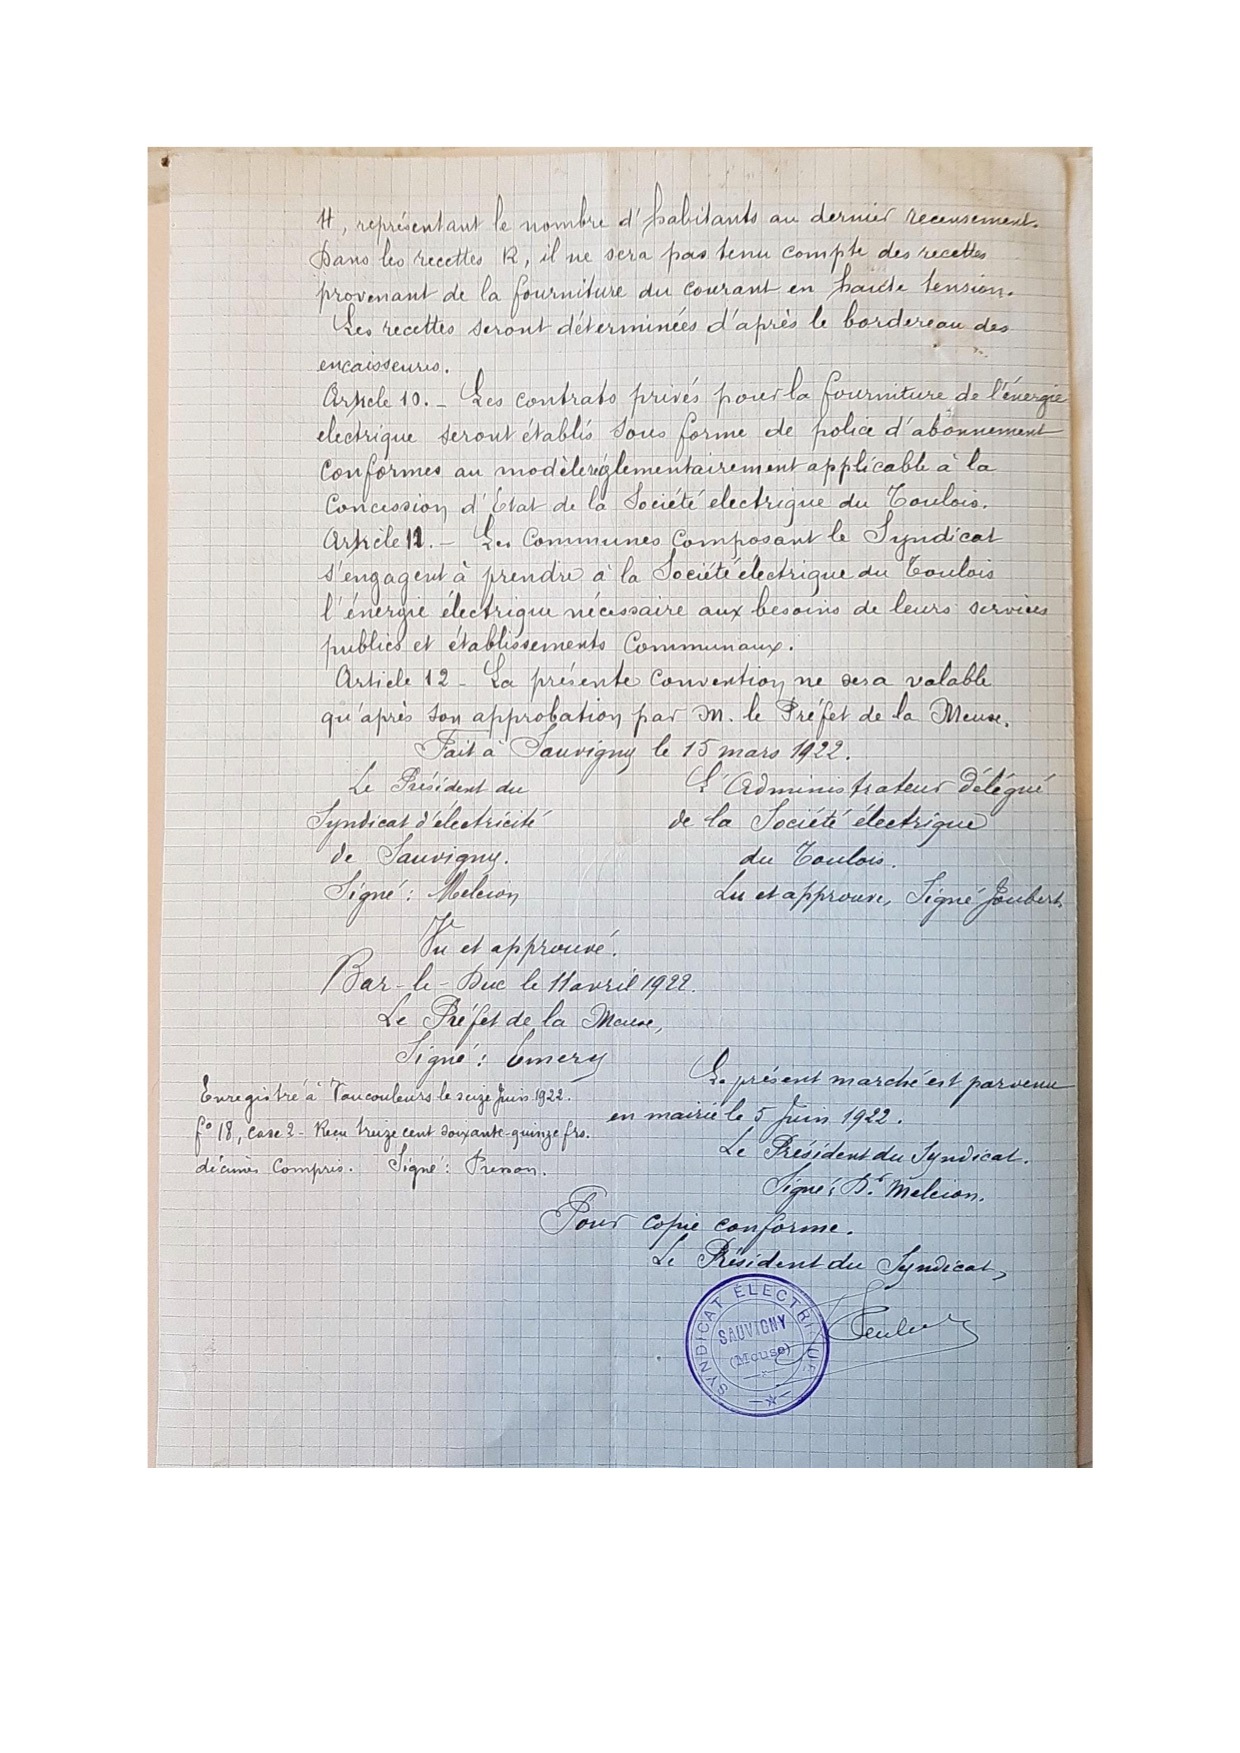 H, représentant le nombre d'habitants au dernier recensement.
Dans les recettes R, il ne sera pas tenu compte des recettes
provenant de la fourniture du courant en haute tension.
Les recettes seront déterminées d'après le bordereau des
encaisseurs.
Article 10. - Les contrats privés pour la fourniture de l'énergie
electrique seront établis sous forme de police d'abonnement
conformes au modèle réglementairement applicable à la
Concession d'Etat de la Société electrique du Toulois.
Article 11. - Les Communes composant le Syndicat
s'engagent à prendre à la Société électrique du Toulois
l'énergie électrique nécessaire aux besoins de leurs services
publics et établissements Communaux.
Article 12 - La présente Convention ne sera valable
qu'après son approbation par M. le Préfet de la Meuse.
Fait à Sauvigny le 15 mars 1922.
Le Président du
Syndicat d'électricité
de Sauvigny.
Signé : Melcion
L'Administrateur Délégué
de la Société électrique
du Toulois.
Lu et approuvé, Signé Joubert
Vu et approuvé.
Bar-le-Duc le 11 avril 1922.
Le Préfet de la Meuse,
Signé : Emery
Enregistré à Vaucouleurs le seize Juin 1922.
fo 18, case 2 - Reçu treize cent soixante-quinze frs.
décimes Compris. Signé :
Le présent marché est parvenu
en mairie le 5 Juin 1922.
Le Président du Syndicat.
Signé : Dr Melcion.
Pour copie conforme.
Le Président du Syndicat,
SYNDICAT ÉLECTRIQUE
SAUVIGNY
(Meuse)